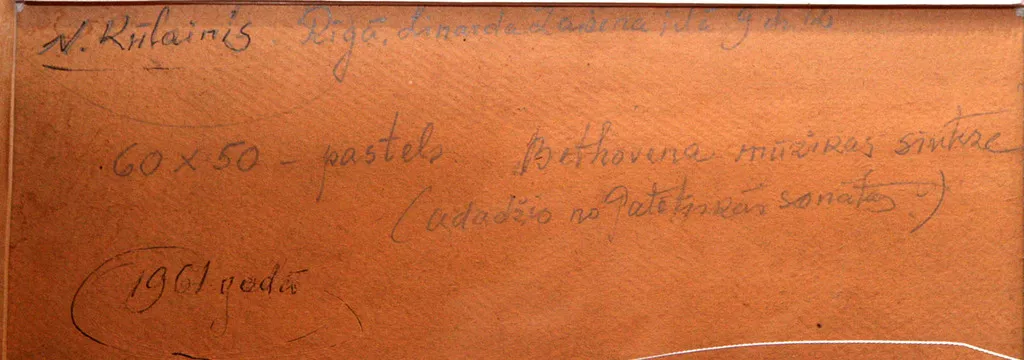 N. Kūlainis. Rīgā, Linarda Laicena ielā 9
60 x 50 – pastels Bethovena mūzikas
(adadžio no Patētiskās sonātas.)
1961. gadā